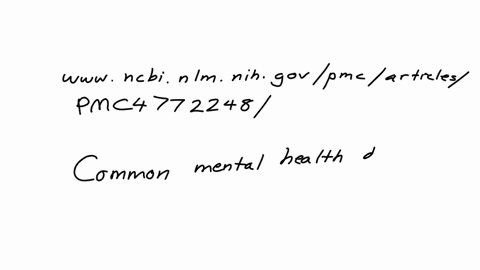 www.ncbi.nlm.nih.gov/pmc/artrcles/
PMC4772248/
Common mental health d